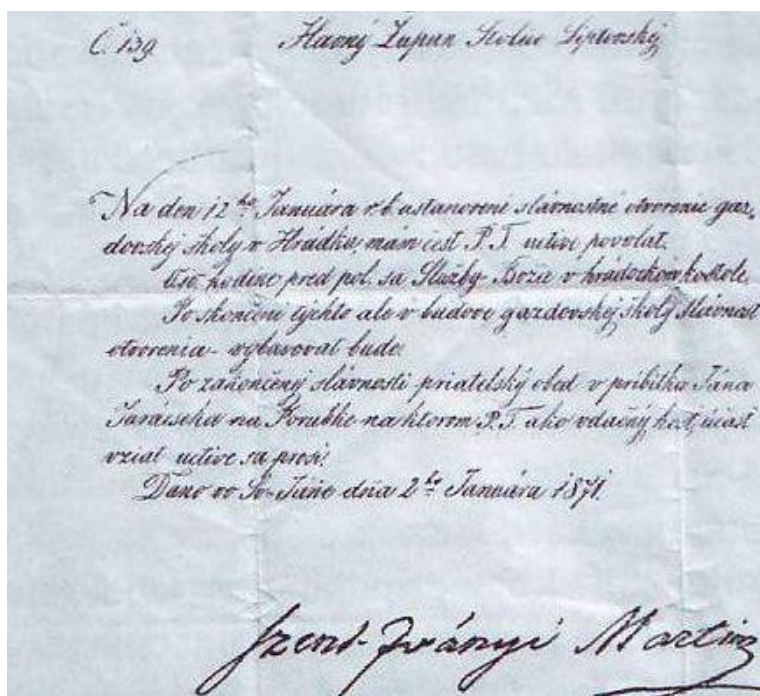 Č. 139. Hlavný Župan Stolice Liptovskej
Na den 12ho Januára r. b. ustanovené slávnostné otvorenie gaz-
dovskej školy v Hrádku, mám česť P. T. uctive povolať.
hodine pred pol. sa Služby Božie v hrádockom kostole,
Po skončení týchto ale v budove gazdovskej školy slávnosť
otvorenia - vybavovať bude.
Po zakončenej slávnosti priatelský obed v príbitku Jána
na Porubke na ktorom P. T. ako vďačný hosť, účasť
vziať uctive sa prosí.
Dano vo Sv. Jáne dňa 2ho Januára 1871.
Szent-Iványi Martin